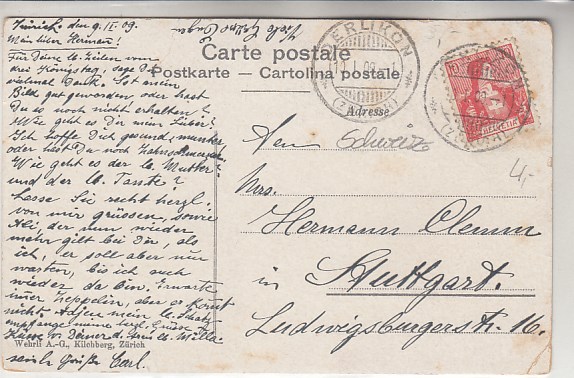 Zürich den 9. II. 09.
Mein lieber Herman!
Für Deine lb. Zeilen vom
drei Königstag, sage Dir
vielmal Dank. Ist mein
Bild gut geworden oder hast
Du es noch nicht erhalten?
Wie geht es Dir mein Lieber?
Ich hoffe Dich gesund, munter
oder hast Du noch Zahnschmerzen?
Wie geht es der lb. Mutter
und der lb. Tante?
Lasse Sie recht herzl.
von mir grüssen, sowie
der nun wieder
mehr gilt bei Dir, als
ich, er soll aber nur
warten, bis ich auch
wieder da bin. Erwarte
immer Zeppelin, aber es kommt
nicht. Adjeu mein lb. Schatz
empfange meine herzl. Grüsse &
Küsse v. Deinem
Wehrli A.-G., Kilchberg, Zürich
viele Grüße Carl.
Carte postale
Postkarte - Cartolina postale
Adresse
OERLIKON
(ZÜRICH)
HELVETIA
10
Schweiz
4,-
Herrn
Hermann Clemm
in Stuttgart.
Ludwigsburgerstr. 16.